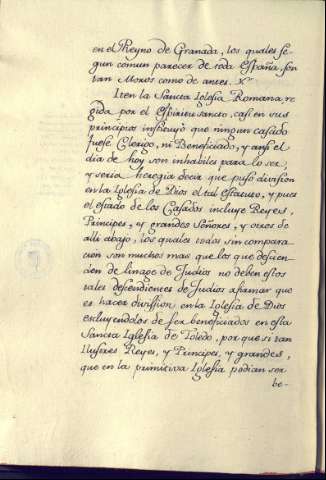 en el Reyno de Granada, los quales se-
gun comun parecer de toda España, son
tan Moros como de antes.
Iten la Sancta Iglesia Romana, re
gida por el Espiritu sancto, casi en sus
principios instituyo que ningun casado
fuese Clerigo, ni Beneficiado, y ansi el
dia de hoy son inhabiles para lo ser,
y seria heregia decir que puso division
en la Iglesia de Dios el tal Estatuto, y pues
el estado de los Casados incluye Reyes,
Principes, y grandes Señores, y otros de
alli abajo, los quales todos sin compara
cion son muchos mas que los que descien-
cien de linage de Judios no deben estos
tales descendientes de Judios afirmar que
es hacer division en la Iglesia de Dios
escluyendolos de ser beneficiados en esta
Sancta Iglesia de Toledo, porque si tan
Ilustres Reyes, y Principes, y grandes,
que en la primitiva Iglesia podian ser
be-